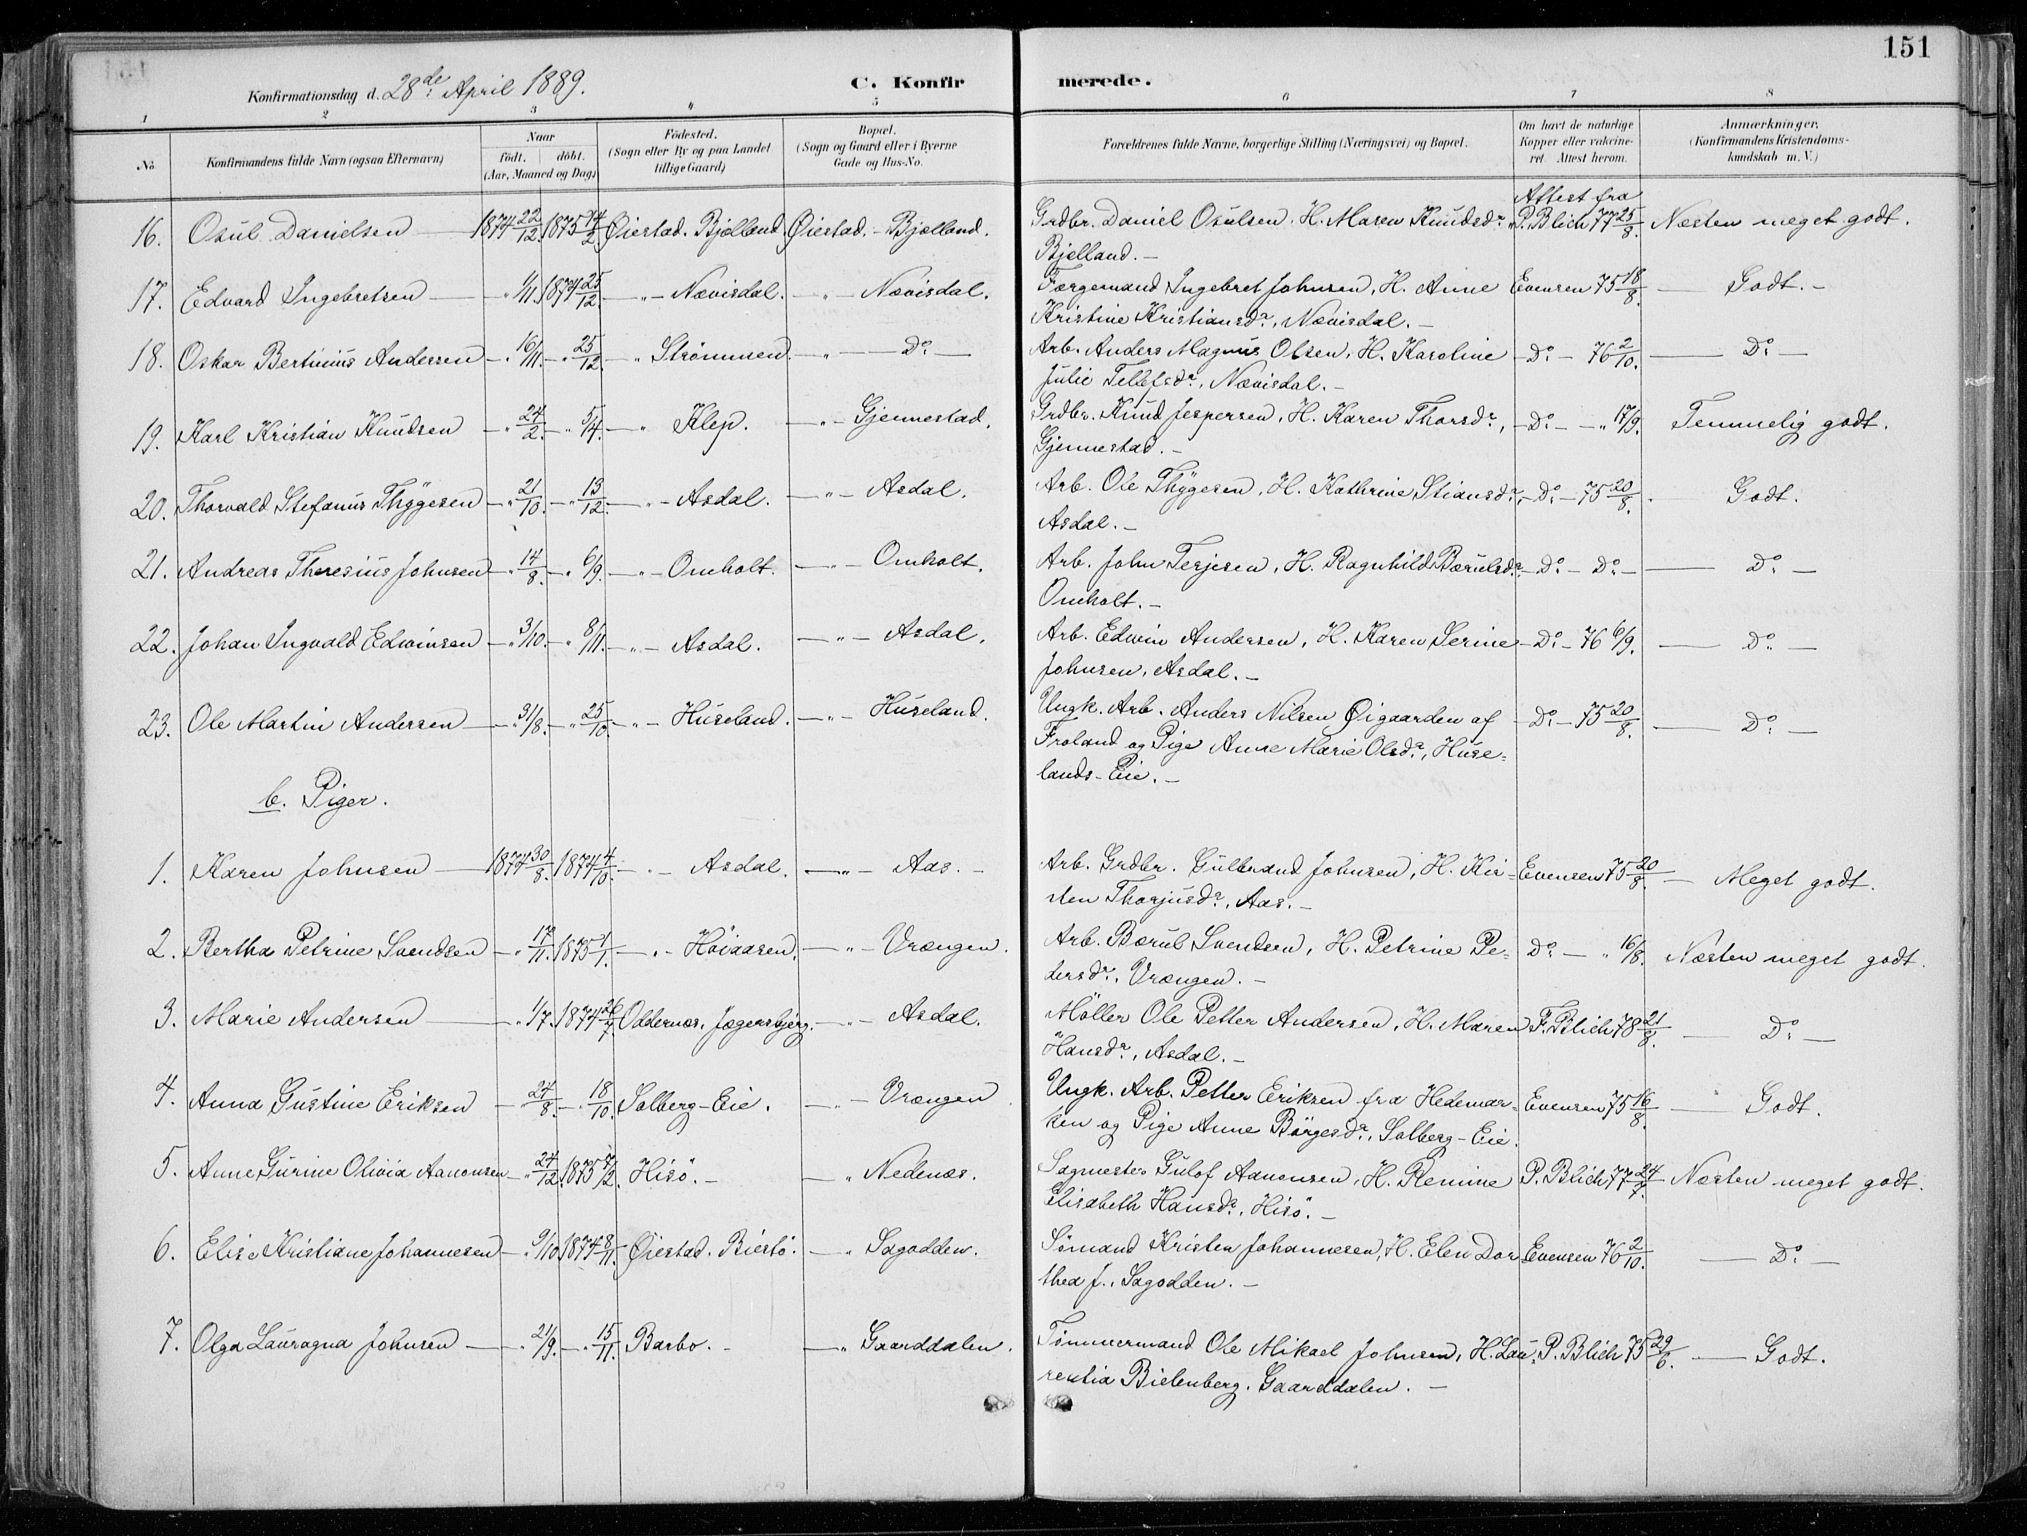 151
Konfirmationsdag d. 28de April 1889.
C. Konfirmerede.
1 2 3 4 5 6 7 8
No
Konfirmandens fulde Navn (ogsaa Efternavn)
Naar
født. døbt.
(Aar, Maaned og Dag)
Födested.
(Sogn eller By og paa Landet
tillige Gaard)
Bopæl.
(Sogn og Gaard eller i Byerne
Gade og Hus-No.
Forældrenes fulde Navne, borgerlige Stilling (Næringsvei) og Bopæl.
Om havt de naturlige
Kopper eller vakcine-
ret. Attest herom.
Anmærkninger.
(Konfirmandens Kristendoms-
kundskab m. V.)
Attest fra
16. Osul Danielsen 1874 22/12. 1875 14/2 Øiestad. Bjelland. Øiestad. - Bjelland. Grdbr. Daniel Osulsen. H. Maren Knudsdr. P. Blich 77 25/8. Næsten meget godt.
Bjelland. -
17. Edvard Ingebretsen - " 1/11. 1874 25/12. - " - Nævisdal. - " - Nævisdal. Færgemand Ingebret Johnsen, H. Anne Evensen 75 18/8. - Godt. -
Kristine Kristiansdr., Nævisdal. -
18. Oskar Bertinius Andersen - " 16/11. - " 25/12. - " Strömmen. - " - Do. - Arb. Anders Magnus Olsen, H. Karoline - Do. - 76 2/10. - Do. -
Julie Tellefsdr., Nævisdal. -
19. Karl Kristian Knudsen - " 24/2. - " 5/4. - " Klep. - " - Gjennestad. Grdbr. Knud Jespersen, H. Karen Thorsdr., - Do. - - " 17/9. Temmelig godt.
Gjennestad. -
20. Thorvald Stefanus Thygesen - " 21/10. - " 13/12. - " - Asdal. - " - Asdal. Arb. Ole Thygesen, H. Kathrine Stiansdr., - Do. - 75 20/8. - Godt.
Asdal. -
21. Andreas Theresius Johnsen - " 14/8. - " 6/9. - " - Omholt. - " - Omholt. Arb. John Terjesen, H. Ragnhild Bærulsdr. - Do. - Do. - - Do. -
Omholt. -
22. Johan Ingvald Edwinsen - " 3/10. - " 8/11. - " - Asdal. - " - Asdal. Arb. Edwin Andersen, H. Karen Serine - Do. - 76 6/9. - Do. -
Johnsen, Asdal. -
23. Ole Martin Andersen - " 31/8. - " 25/10. - " - Huseland. - " - Huseland. Ungk. Arb. Anders Nilsen Øigaarden af - Do. - 75 20/8. - Do. -
Froland og Pige Anne Marie Olsdr., Huse=
lands-Eie. -
b. Piger.
1. Karen Johnsen - 1874 30/8. 1874 4/10. - " - Asdal. - " - Aas. - Arb. Grdbr. Gulbrand Johnsen, H. Kir= Evensen 75 20/8. - Meget godt.
sten Thorjusdr., Aas. -
2. Bertha Petrine Svendsen - " 17/11. 1875 1/1. - " - Höiaasen. - " - Vrængen. Arb. Bærul Svendsen, H. Petrine Pe= Do. - " 16/8. Næsten meget godt.
dersdr., Vrængen. -
3. Marie Andersen - " 1/7. 1874 26/7. Oddernæs, Jægersbjerg. - " - Asdal. Möller Ole Petter Andersen, H. Maren F. Blich 78 21/8. - Do. -
Hansdr., Asdal. -
4. Anna Gustine Eriksen - " 24/8. - " 18/10. Solberg-Eie. - " - Vrængen Ungk. Arb. Petter Eriksen fra Hedemar= Evensen 75 16/8. - Godt.
ken og Pige Anne Börgesdr., Solberg-Eie.
5. Anne Gurine Olivia Aanonsen - " 24/12. 1875 7/2. Hisö. - - " Nedenæs. Sagmester Gulof Aanonsen, H. Plemine P. Blich 77 24/7. Næsten meget godt.
Elisabeth Hansdr., Hisö. -
6. Elise Kristiane Johannesen - " 9/10. 1874 8/11. Øiestad. Biestö. - " Sagodden. Sömand Kristen Johannesen, H. Elen Dor Evensen 76 2/10. - Do. -
thea J., Sagodden. -
7. Olga Lauragna Johnsen - " 21/9. - " 15/11. Barbo. - - " Gaarddalen. Tømmermand Ole Mikael Johnsen, H. Lau= P. Blich 75 29/6. - Godt.
rentia Bielenberg, Gaarddalen. -